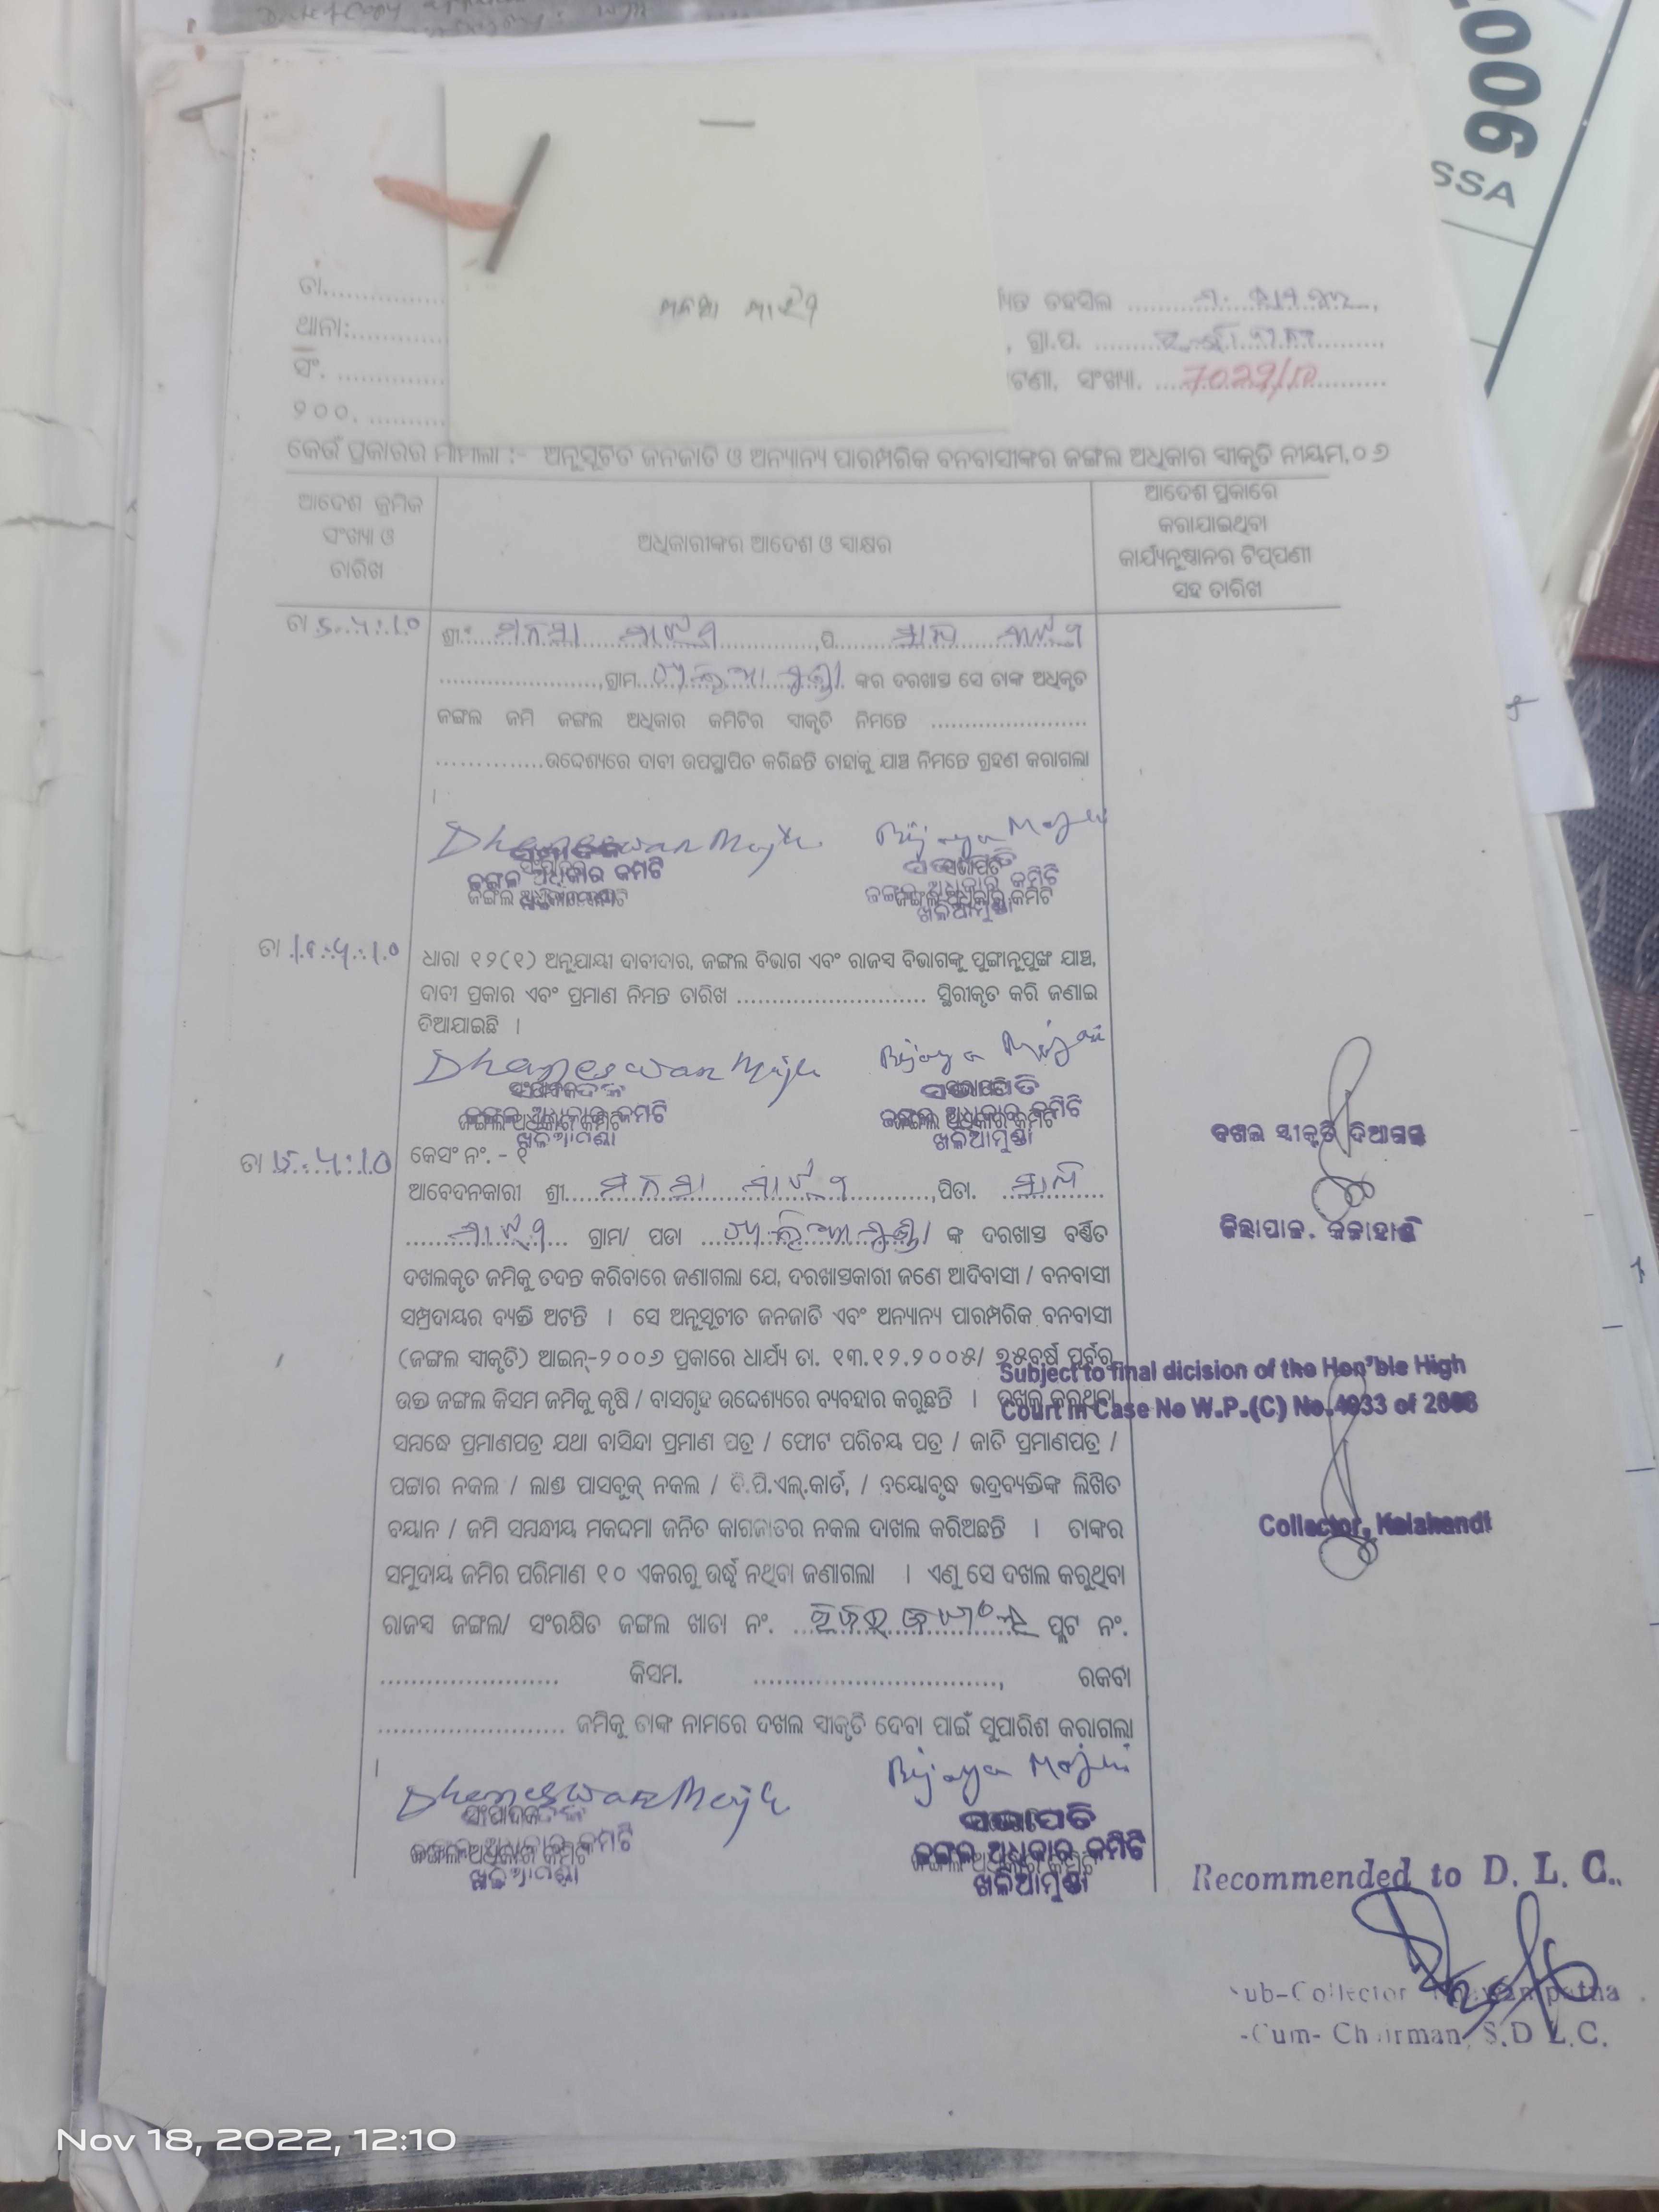 Date of Copy
006
SSA
ମନସା ମାଝୀ
ତା................
ତହସିଲ
ଥାନା:.............
, ଗ୍ରା.ପ.
ସଂ. ...............
ସଂଖ୍ୟା. 7029/10
୨୦୦. ..........
କେଉଁ ପ୍ରକାରର ମାମଲା :- ଅନୁସୂଚିତ ଜନଜାତି ଓ ଅନ୍ୟାନ୍ୟ ପାରମ୍ପରିକ ବନବାସୀଙ୍କର ଜଙ୍ଗଲ ଅଧିକାର ସ୍ୱୀକୃତି ନୀୟମ,୦୬
ଆଦେଶ କ୍ରମିକ ସଂଖ୍ୟା ଓ ତାରିଖ
ଅଧିକାରୀଙ୍କର ଆଦେଶ ଓ ସ୍ୱାକ୍ଷର
ଆଦେଶ ପ୍ରକାରେ କରାଯାଇଥିବା କାର୍ଯ୍ୟାନୁଷ୍ଠାନର ଟିପ୍ପଣୀ ସହ ତାରିଖ
ତା 5.4.10
ଶ୍ରୀ. ମନସା ମାଝୀ ,ପି.
......................,ଗ୍ରାମ. ଖଳିଆମୁଣ୍ଡା ଙ୍କର ଦରଖାସ୍ତ ସେ ତାଙ୍କ ଅଧିକୃତ
ଜଙ୍ଗଲ ଜମି ଜଙ୍ଗଲ ଅଧିକାର କମିଟିର ସ୍ୱୀକୃତି ନିମନ୍ତେ ......................
..............ଉଦ୍ଦେଶ୍ୟରେ ଦାବୀ ଉପସ୍ଥାପିତ କରିଛନ୍ତି ତାହାକୁ ଯାଞ୍ଚ ନିମନ୍ତେ ଗ୍ରହଣ କରାଗଲା
।
Dhaneswar Majhi Bijaya Majhi
ସଂପାଦକ ସଭାପତି
ଜଙ୍ଗଲ ଅଧିକାର କମିଟି ଜଙ୍ଗଲ ଅଧିକାର କମିଟି
ଖଳିଆମୁଣ୍ଡା
ତା
ଧାରା ୧୨(୧) ଅନୁଯାୟୀ ଦାବୀଦାର, ଜଙ୍ଗଲ ବିଭାଗ ଏବଂ ରାଜସ୍ୱ ବିଭାଗଙ୍କୁ ପୁଙ୍ଖାନୁପୁଙ୍ଖ ଯାଞ୍ଚ,
ଦାବୀ ପ୍ରକାର ଏବଂ ପ୍ରମାଣ ନିମନ୍ତ ତାରିଖ .......................... ସ୍ଥିରୀକୃତ କରି ଜଣାଇ
ଦିଆଯାଇଛି ।
Dhaneswar Majhi Bijaya Majhi
ସଂପାଦକ ସଭାପତି
ଜଙ୍ଗଲ ଅଧିକାର କମିଟି ଜଙ୍ଗଲ ଅଧିକାର କମିଟି
ଖଳିଆମୁଣ୍ଡା ଖଳିଆମୁଣ୍ଡା
ଦଖଲ ସ୍ୱୀକୃତି ଦିଆଗଲା
ଜିଲ୍ଲାପାଳ. କଳାହାଣ୍ଡି
ତା
କେସ୍ ନଂ. - ୧
ଆବେଦନକାରୀ ଶ୍ରୀ. ମନସା ମାଝୀ ,ପିତା.
ମାଝୀ ଗ୍ରାମ/ ପଡା ଖଳିଆମୁଣ୍ଡା ଙ୍କ ଦରଖାସ୍ତ ବର୍ଣ୍ଣିତ
ଦଖଲକୃତ ଜମିକୁ ତଦନ୍ତ କରିବାରେ ଜଣାଗଲା ଯେ, ଦରଖାସ୍ତକାରୀ ଜଣେ ଆଦିବାସୀ / ବନବାସୀ
ସମ୍ପ୍ରଦାୟର ବ୍ୟକ୍ତି ଅଟନ୍ତି । ସେ ଅନୁସୂଚୀତ ଜନଜାତି ଏବଂ ଅନ୍ୟାନ୍ୟ ପାରମ୍ପରିକ ବନବାସୀ
(ଜଙ୍ଗଲ ସ୍ୱୀକୃତି) ଆଇନ୍-୨୦୦୬ ପ୍ରକାରେ ଧାର୍ଯ୍ୟ ତା. ୧୩.୧୨.୨୦୦୫/ ୭୫ବର୍ଷ ପୂର୍ବରୁ
ଉକ୍ତ ଜଙ୍ଗଲ କିସମ ଜମିକୁ କୃଷି / ବାସଗୃହ ଉଦ୍ଦେଶ୍ୟରେ ବ୍ୟବହାର କରୁଛନ୍ତି । ଦଖଲ କରୁଥିବା
Subject to final dicision of the Hon'ble High
Court in Case No W.P.(C) No.4933 of 2008
ସମ୍ବନ୍ଧେ ପ୍ରମାଣପତ୍ର ଯଥା ବାସିନ୍ଦା ପ୍ରମାଣ ପତ୍ର / ଫୋଟ ପରିଚୟ ପତ୍ର / ଜାତି ପ୍ରମାଣପତ୍ର /
ପଟ୍ଟାର ନକଲ / ଲାଣ୍ଡ ପାସବୁକ୍ ନକଲ / ବି.ପି.ଏଲ୍.କାର୍ଡ, / ବୟୋବୃଦ୍ଧ ଭଦ୍ରବ୍ୟକ୍ତିଙ୍କ ଲିଖିତ
ବୟାନ / ଜମି ସମ୍ବନ୍ଧୀୟ ମକଦ୍ଦମା ଜନିତ କାଗଜାତର ନକଲ ଦାଖଲ କରିଅଛନ୍ତି । ତାଙ୍କର
ସମୁଦାୟ ଜମିର ପରିମାଣ ୧୦ ଏକରରୁ ଉର୍ଦ୍ଧ୍ୱ ନଥିବା ଜଣାଗଲା । ଏଣୁ ସେ ଦଖଲ କରୁଥିବା
Collector, Kalahandi
ରାଜସ୍ୱ ଜଙ୍ଗଲ/ ସଂରକ୍ଷିତ ଜଙ୍ଗଲ ଖାତା ନଂ. ପ୍ଲଟ ନଂ.
...................... କିସମ. ..............................., ରକବା
........................ ଜମିକୁ ତାଙ୍କ ନାମରେ ଦଖଲ ସ୍ୱୀକୃତି ଦେବା ପାଇଁ ସୁପାରିଶ କରାଗଲା
।
Dhaneswar Majhi Bijaya Majhi
ସଂପାଦକ ସଭାପତି
ଜଙ୍ଗଲ ଅଧିକାର କମିଟି ଜଙ୍ଗଲ ଅଧିକାର କମିଟି
ଖଳିଆମୁଣ୍ଡା ଖଳିଆମୁଣ୍ଡା
Recommended to D. L. C..
Sub-Collector Bhawanipatna
-Cum- Chairman, S.D L.C.
Nov 18, 2022, 12:10